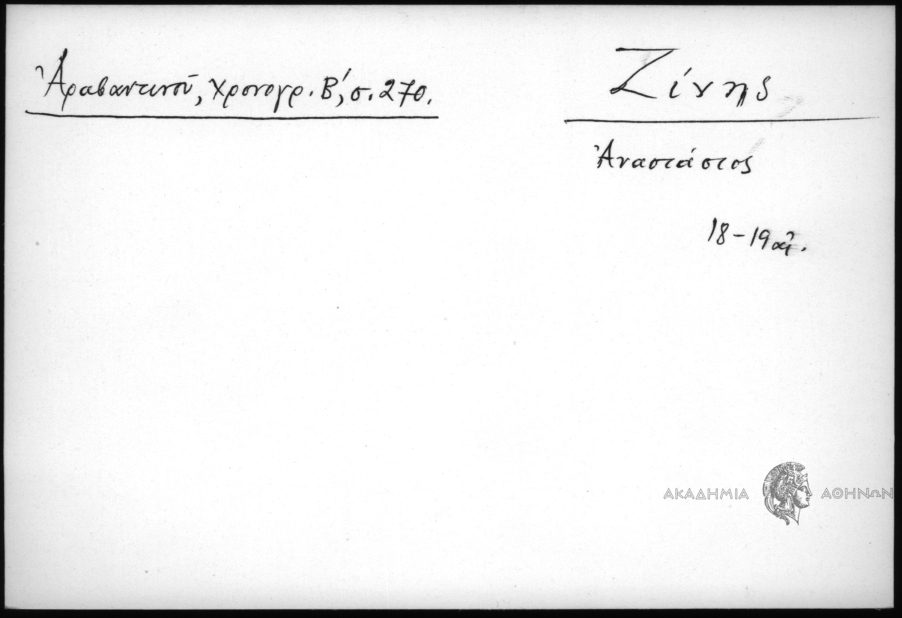 Ἀραβαντινοῦ, Χρονογρ. Β΄, σ. 270.
Ζίνης
Ἀναστάσιος
18-19 αἰ.
ΑΚΑΔΗΜΙΑ ΑΘΗΝΩΝ